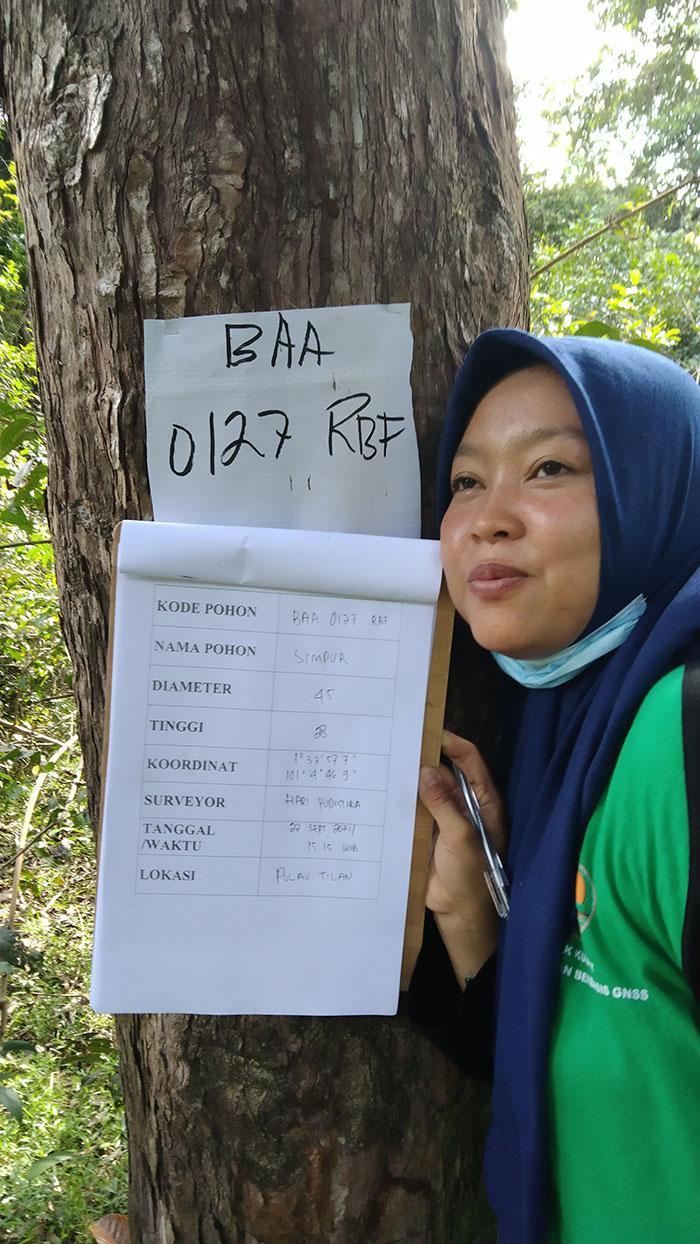 BAA
0127 RBF
KODE POHON BAA 0127 RBF
NAMA POHON SIMPUR
DIAMETER 45
TINGGI 28
KOORDINAT 1° 37' 57 7"
101° 4' 46 9"
SURVEYOR HARI YUDISTIRA
TANGGAL 22 SEPT 2021/
/WAKTU 15 15 WIB
LOKASI PULAU TILAN
GNSS